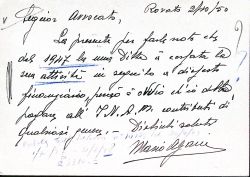 Rovato 2/10/50
Signor Avvocato,
La presente per farle noto che
dal 1947 la mia Ditta è cessata la
sua attività in seguito al dissesto
finanziario, perciò è ovvio che io debba
pagare all' I.N.A.M. contributi di
qualsiasi genere.
Distinti saluti
Mario